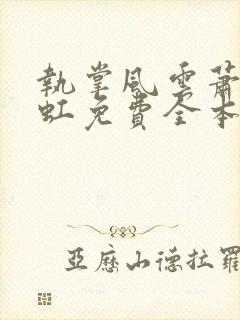 執掌風雲蕭
虹免費全本
亞歷山德拉羅